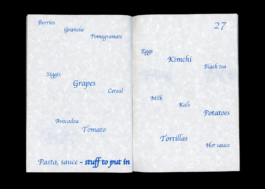 Berries
Granola
Pomegranate
Eggs
Grapes
Cereal
Avocados
Tomato
Pasta, sauce - stuff to put in
27
Eggs
Kimchi
Black tea
Milk
Kale
Potatoes
Tortillas
Hot sauce